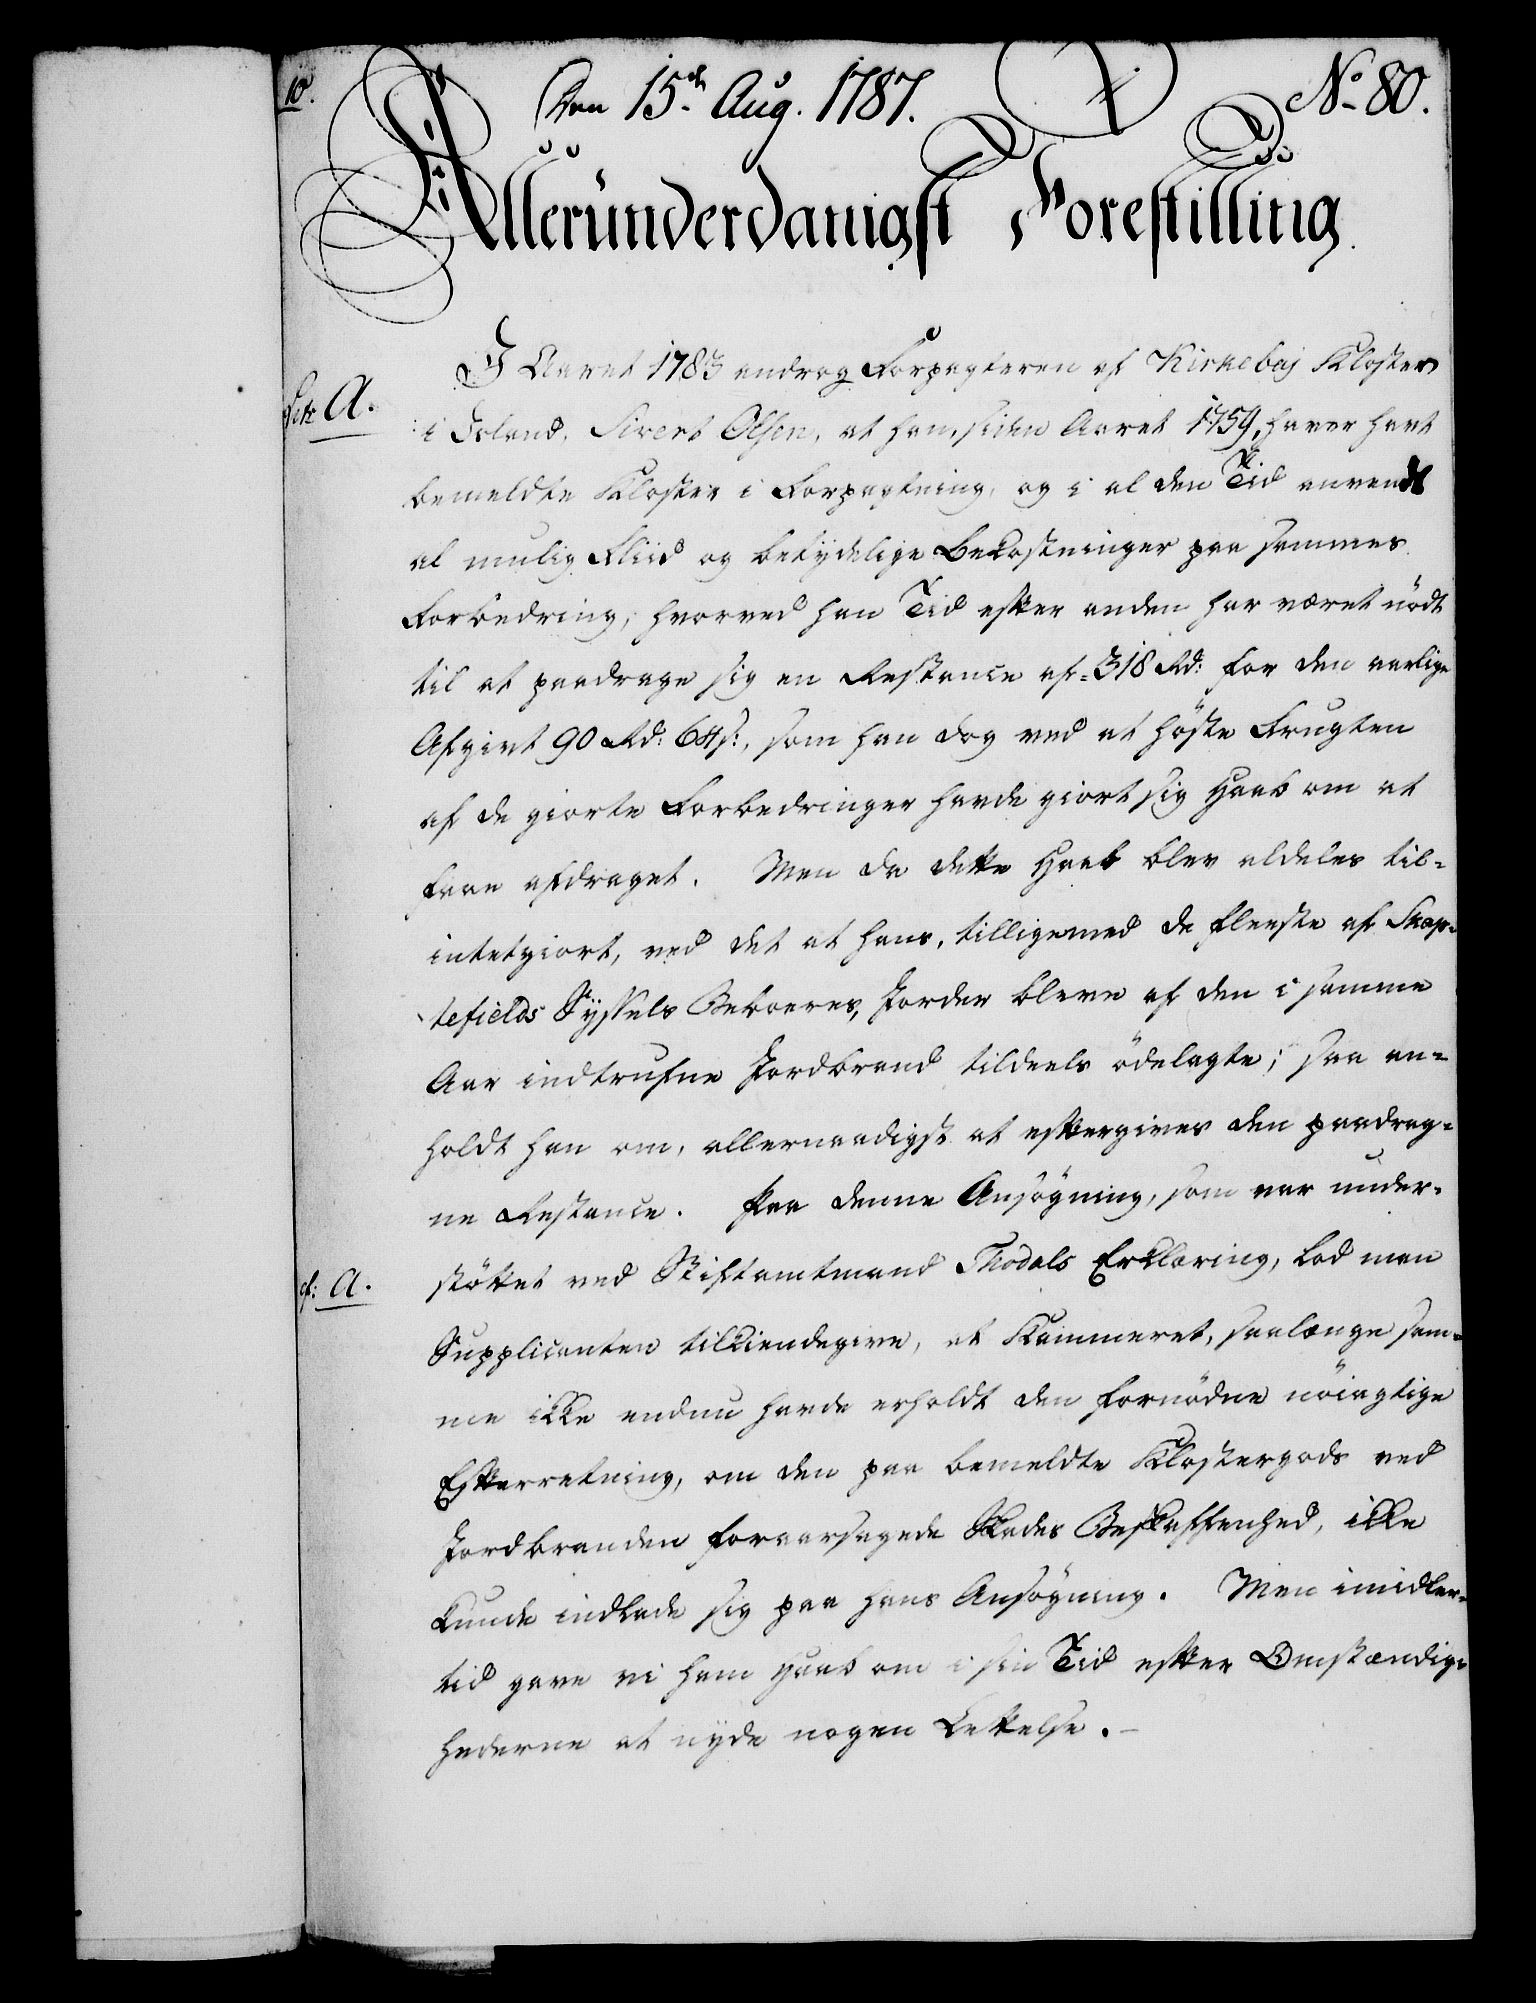 10.
Den 15de Aug. 1787.
No 80.
Alleründerdanigst Forestilling.
Litr A.
I Aaret 1783 androg Forpagteren af Kirkebaj Kloster
i Island, Sivert Olsen, at han, siden Aaret 1759, haver havt
bemeldte Kloster i Forpagtning, og i al den Tid anvendt
al mulig Fliid og betydelige Bekostninger paa sammes
Forbedring; hvorved han Tid efter anden har været nödt
til at paadrage sig en Restance af 318 Rd: for den aarlige
Afgivt 90 Rd: 64 s:, som han dog ved at höste Frugten
af de giorte Forbedringer havde giort sig Haab om at
faae afdraget. Men da dette Haab blev aldeles til-
intetgiort, ved det at hans, tilligemed de fleeste af Skap-
tefields Syssels Beboeres, Jorder bleve af den i samme
Aar indtrufne Jordbrand tildeels ödelagte; saa an-
holdt han om, allernaadigst at eftergives den paadrag-
ne Restance. Paa denne Ansögning, som var under-
cf: A.
stöttet ved Stiftamtmand Thodals Erklæring, lod man
Supplicanten tilkiendegive, at Kammeret, saalænge sam-
me ikke endnu havde erholdt den fornödne nöiagtige
Efterretning, om den paa bemeldte Klostergods ved
Jordbranden foraarsagede Skades Beskaffenhed, ikke
kunde indlade sig paa hans Ansögning. Men imidler-
tid gave vi ham Haab om i sin Tid efter Omstændig-
hederne at nyde nogen Lettelse.